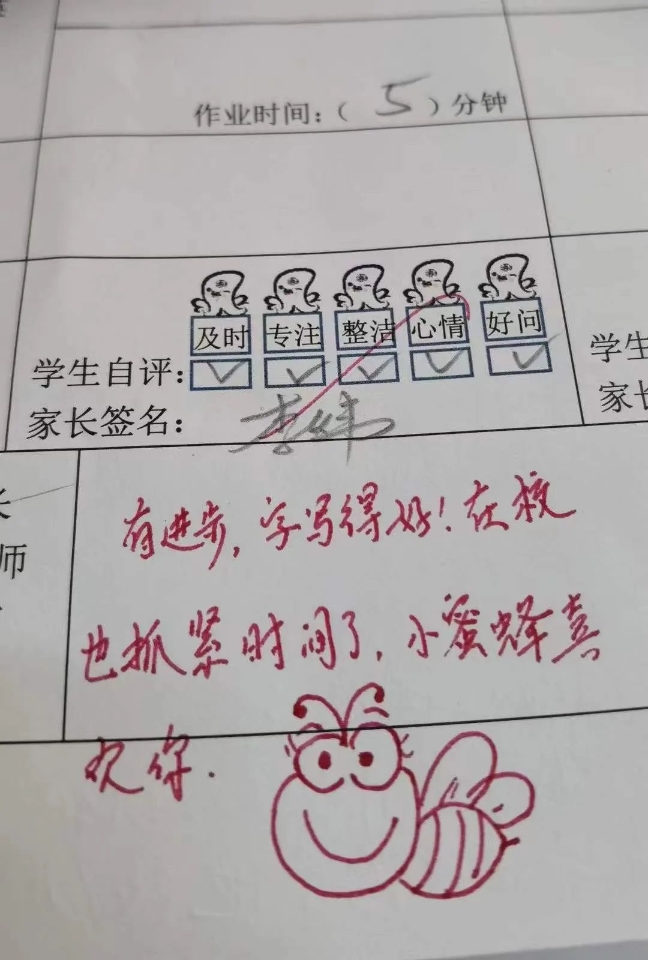 作业时间：（ 5 ）分钟
及时 专注 整洁 心情 好问
学生自评：
学生
家长签名：
家长
师
有进步，字写得好！在校
也抓紧时间了，小蜜蜂喜
欢你.